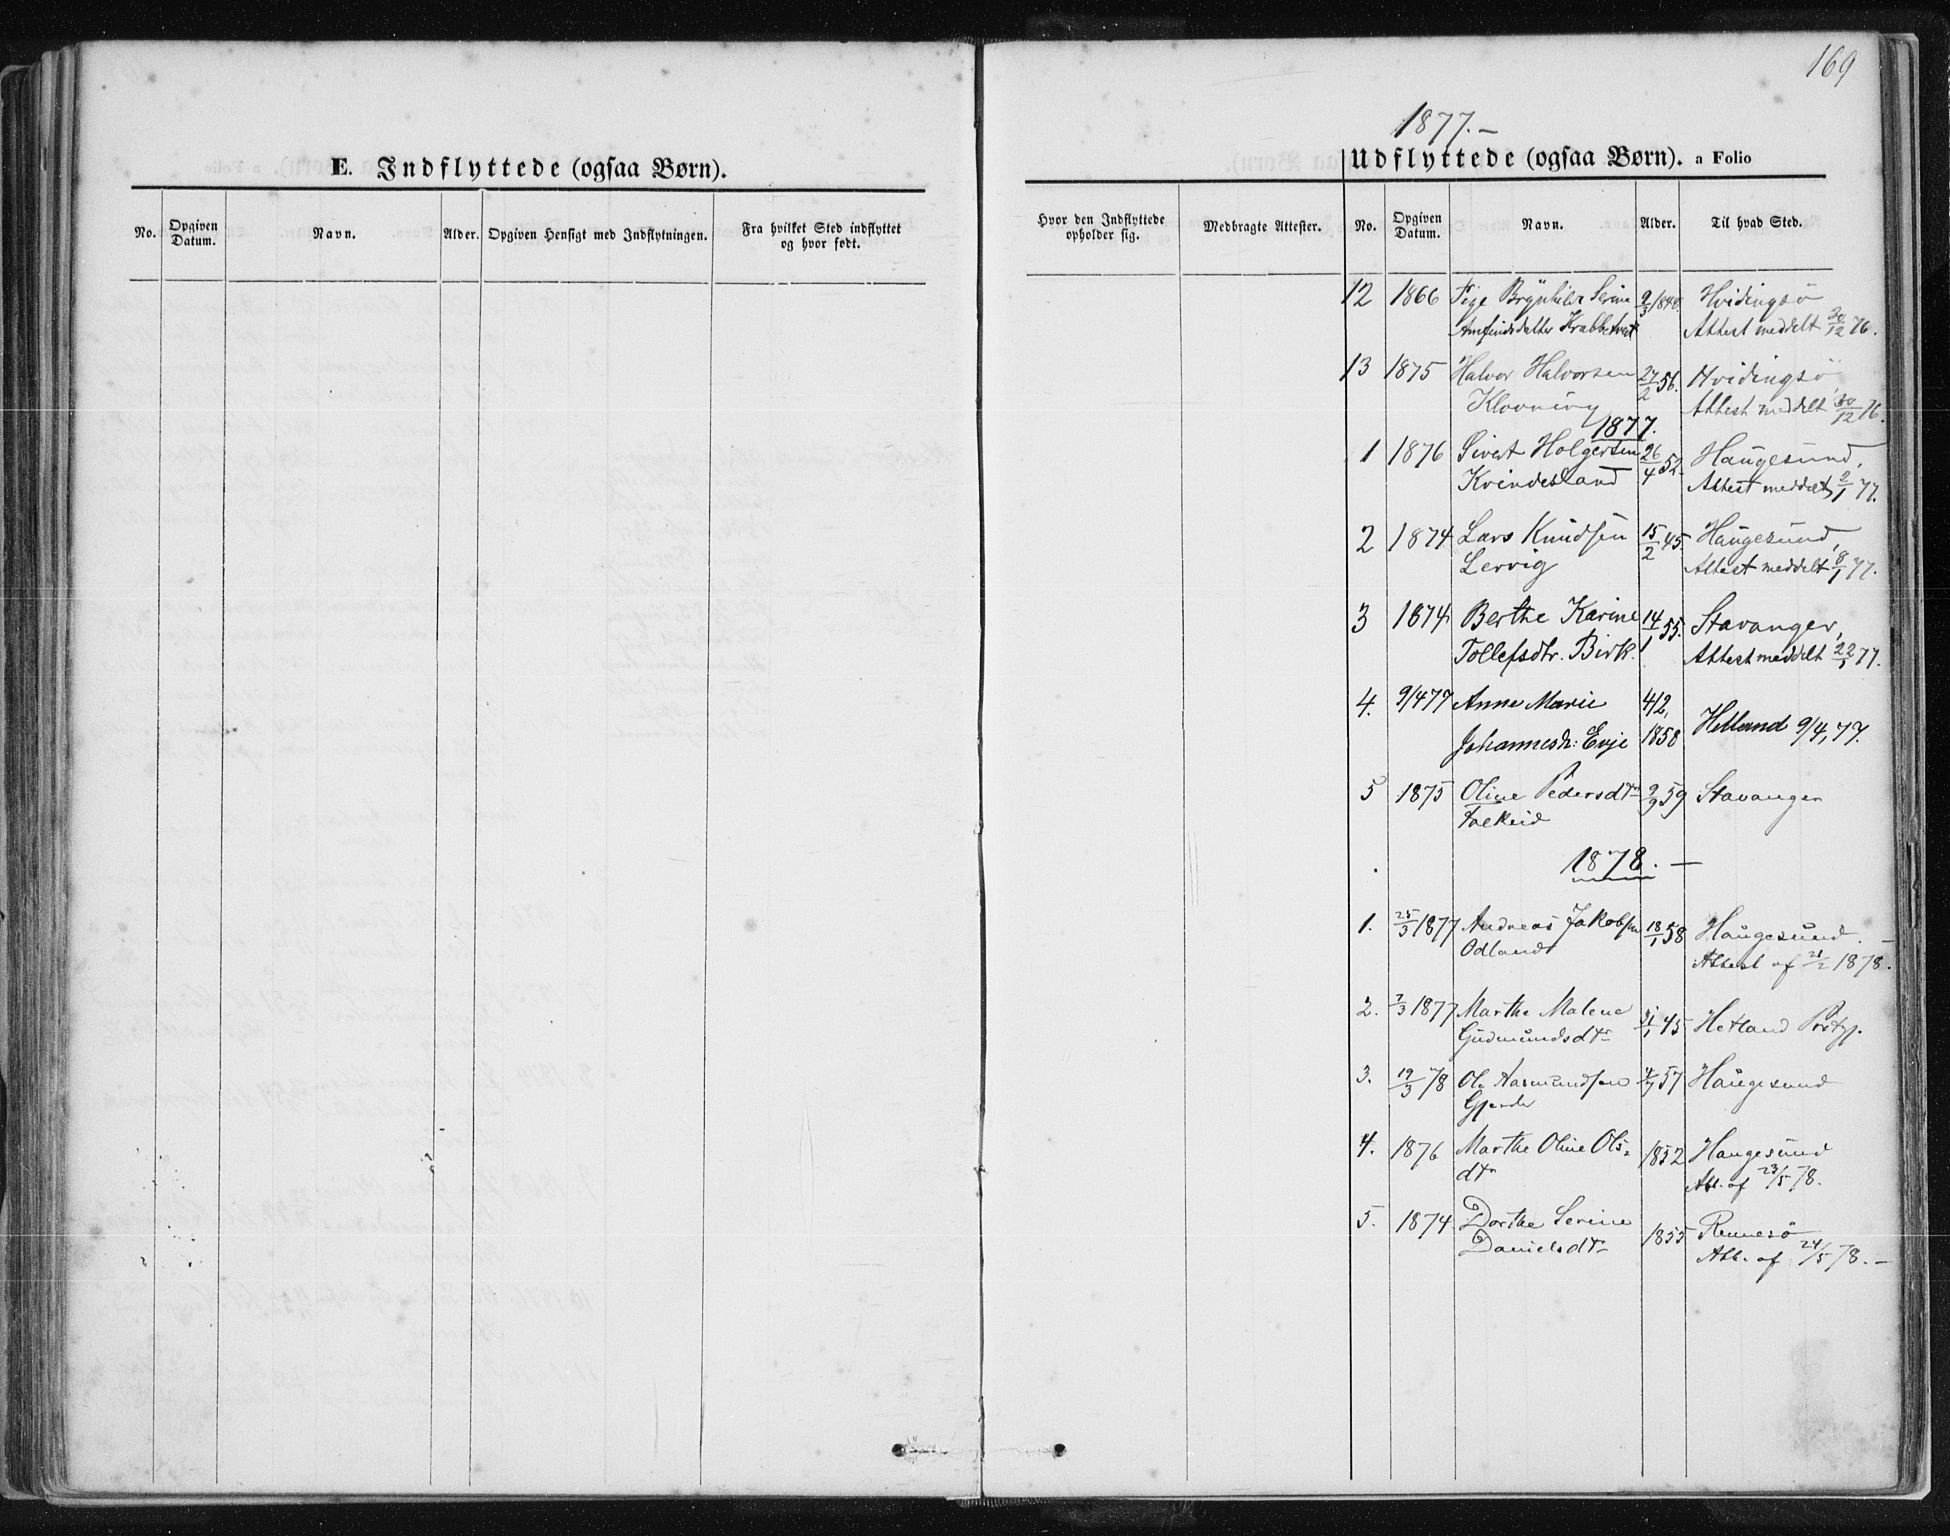 169
1877.—
E. Indflyttede (ogsaa Børn).
Udflyttede (ogsaa Børn). a Folio
No. Opgiven Datum. Navn. Alder. Opgiven Hensigt med Indflytningen. Fra hvilket Sted indflyttet og hvor født.
Hvor den Indflyttede opholder sig. Medbragte Attester. No. Opgiven Datum. Navn. Alder. Til hvad Sted.
12 1866 Pige Brynhild Serine 9/3 1848. Hvidingsø
Arnfindsdatter Krabbetvet Attest meddelt 30/12 76.
13 1875 Halvor Halvorsen 27/2 56. Hvidingsø
Klovning Attest meddelt 30/12 76.
1877.
1 1876 Sivert Holgersen 26/4 52. Haugesund,
Kvindesland Attest meddelt 2/1 77.
2 1874 Lars Knudsen 15/2 45. Haugesund,
Lervig Attest meddelt 8/1 77.
3 1874 Berthe Karine 14/1 55. Stavanger,
Tollefsdtr. Birk. Attest meddelt 22/1 77.
4. 9/4 77 Anne Marie 4/2, Hetland 9/4, 77.
Johannesdr: Evje 1858
5 1875 Oline Pedersdtr 9/9 59 Stavanger
Falkeid
1878.—
1. 25/3 1877 Andreas Jakobsen 18/1 58 Haugesund.—
Odland Attest af 21/2 1878.
2. 7/3 1877 Marthe Malene 31/1 45 Hetland Prstgj.
Gudmundsdtr
3. 19/3 78 Ole Aasmundsen 4/7 57 Haugesund
4. 1876 Marthe Oline Ols- 1852 Haugesund
dtr Att. af 23/5 78.
5. 1874 Dorthe Serine 1855 Rennesø
Danielsdtr Att. af 24/5 78.—